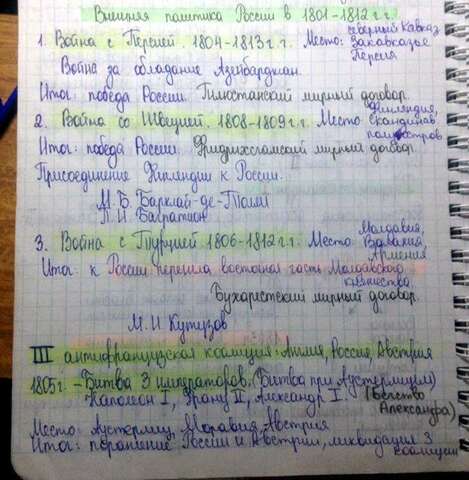 Внешняя политика России в 1801-1812 г.г.
1. Война с Персией, 1804-1813 г.г. Место: Северный Кавказ,
Закавказье
Персия
Война за обладание Азербайджан.
Итог: победа России. Гюлистанский мирный договор.
2. Война со Швецией, 1808-1809 г.г. Место: Финляндия,
Скандинав.
полуостров
Итог: победа России. Фридрихсгамский мирный договор.
Присоединение Финляндии к России.
М. Б. Барклай-де-Толли
П. И. Багратион
3. Война с Турцией 1806-1812 г.г. Место: Молдавия,
Валахия,
Армения
Итог: к России перешла восточная часть Молдавского
княжества
Бухарестский мирный договор.
М. И Кутузов
III антифранцузская коалиция: Англия, Россия, Австрия
1805г. - Битва 3 императоров. (Битва при Аустерлице)
Наполеон I, Франц II, Александр I. (Бегство
Александра)
Место: Аустерлиц, Моравия, Австрия
Итог: поражение России и Австрии, ликвидация 3
коалиции